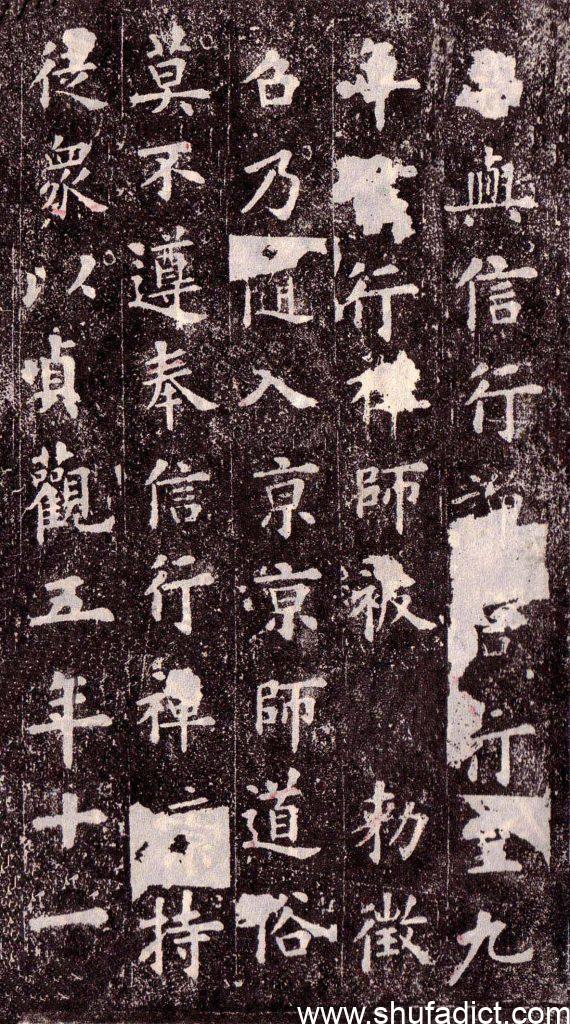 與信行行九
年行禪師被 勅徵
召乃入京京師道俗
莫不遵奉信行禪持
徒眾以貞觀五年十一
www.shufadict.com